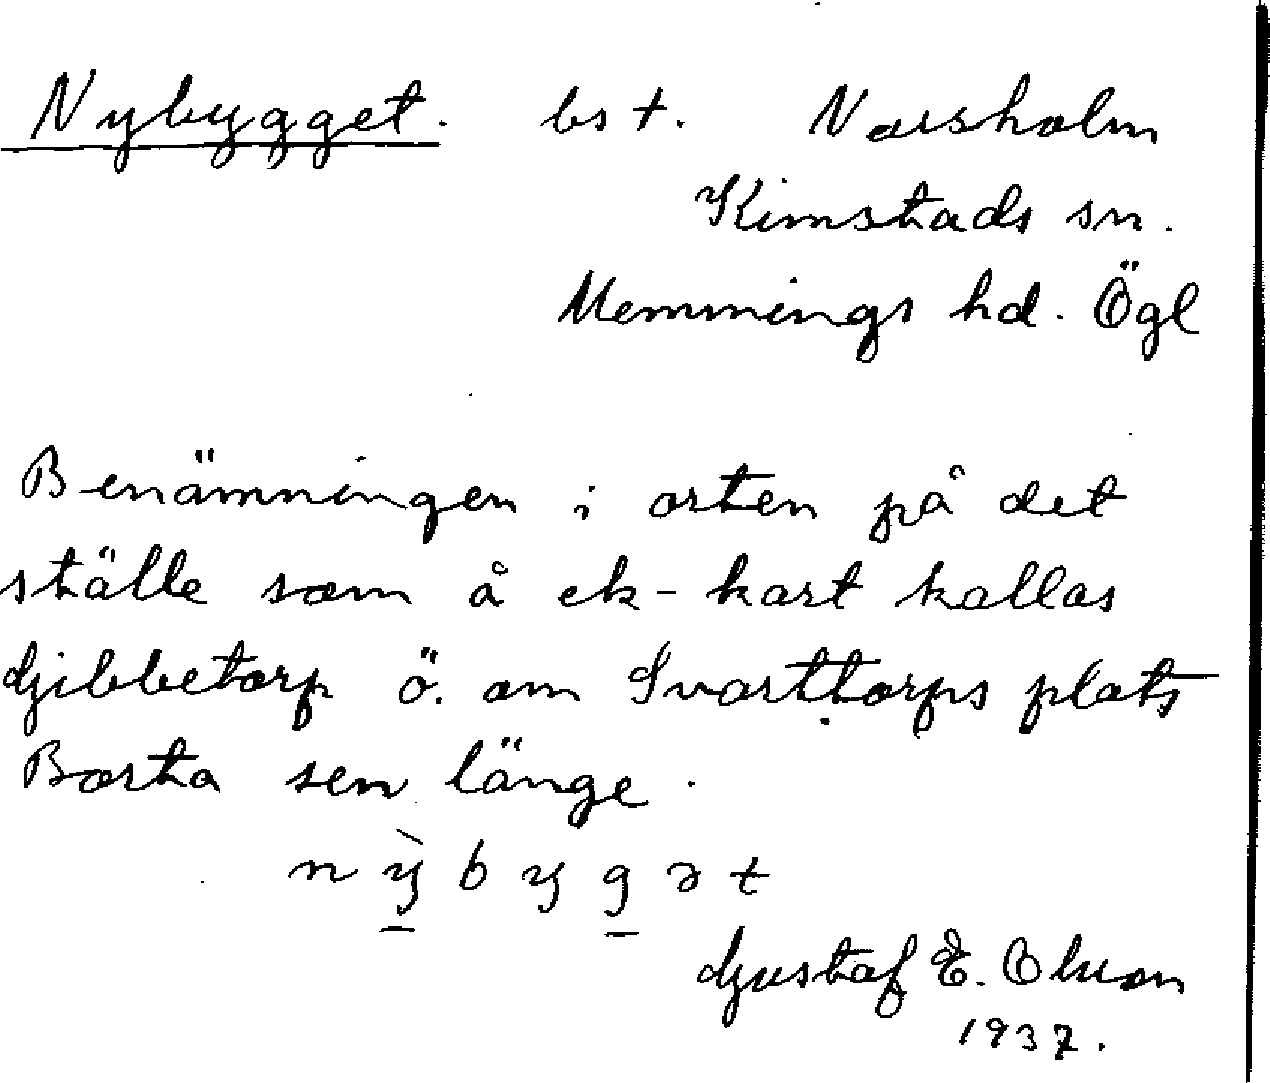 Nybygget. bst. Norsholm
Kimstads sn.
Memmings hd. Ögl
Benämningen i orten på det
ställe som å ek-kart kallas
Gibbetorp ö. om Svarttorps plats
Borta sen länge.
nỳbygət
Gustaf E. Olsson
1937.